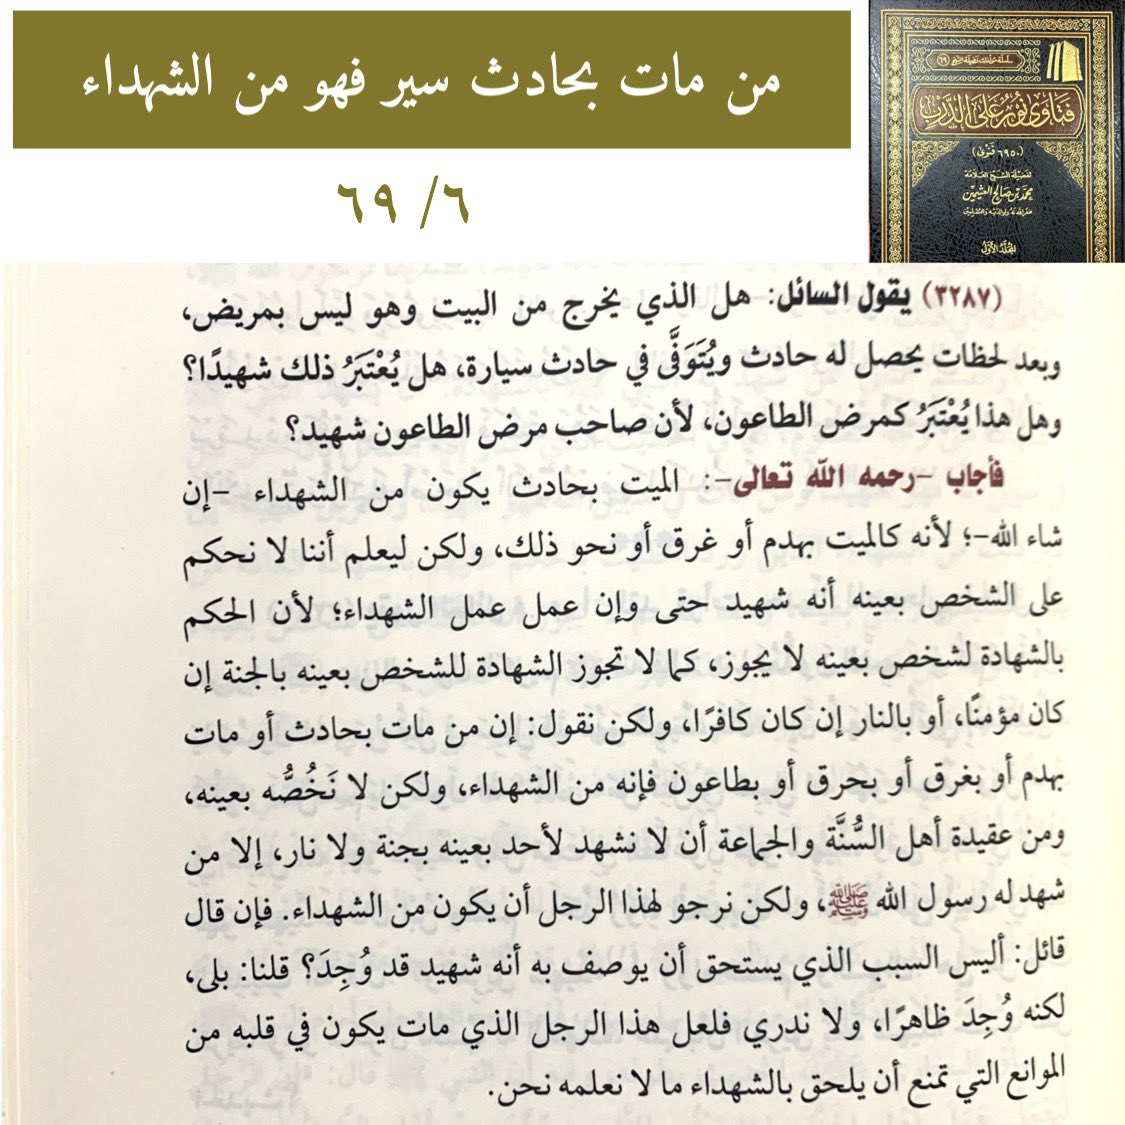 من مات بحادث سير فهو من الشهداء
٦/ ٦٩
سلسلة مؤلفات فضيلة الشيخ (٦٩)
فتاوى نور على الدرب
(٦٩٥٠ فتوى)
لفضيلة الشيخ العلامة
محمد بن صالح العثيمين
غفر الله له ولوالديه وللمسلمين
المجلد الأول
(٣٢٨٧) يقول السائل: هل الذي يخرج من البيت وهو ليس بمريض،
وبعد لحظات يحصل له حادث ويُتَوَفَّى في حادث سيارة، هل يُعْتَبَرُ ذلك شهيدًا؟
وهل هذا يُعْتَبَرُ كمرض الطاعون، لأن صاحب مرض الطاعون شهيد؟
فأجاب -رحمه الله تعالى-: الميت بحادث يكون من الشهداء -إن
شاء الله-؛ لأنه كالميت بهدم أو غرق أو نحو ذلك، ولكن ليعلم أننا لا نحكم
على الشخص بعينه أنه شهيد حتى وإن عمل عمل الشهداء؛ لأن الحكم
بالشهادة لشخص بعينه لا يجوز، كما لا تجوز الشهادة للشخص بعينه بالجنة إن
كان مؤمنًا، أو بالنار إن كان كافرًا، ولكن نقول: إن من مات بحادث أو مات
بهدم أو بغرق أو بحرق أو بطاعون فإنه من الشهداء، ولكن لا نَخُصُّه بعينه،
ومن عقيدة أهل السُّنَّة والجماعة أن لا نشهد لأحد بعينه بجنة ولا نار، إلا من
شهد له رسول الله ﷺ، ولكن نرجو لهذا الرجل أن يكون من الشهداء. فإن قال
قائل: أليس السبب الذي يستحق أن يوصف به أنه شهيد قد وُجِدَ؟ قلنا: بلى،
لكنه وُجِدَ ظاهرًا، ولا ندري فلعل هذا الرجل الذي مات يكون في قلبه من
الموانع التي تمنع أن يلحق بالشهداء ما لا نعلمه نحن.